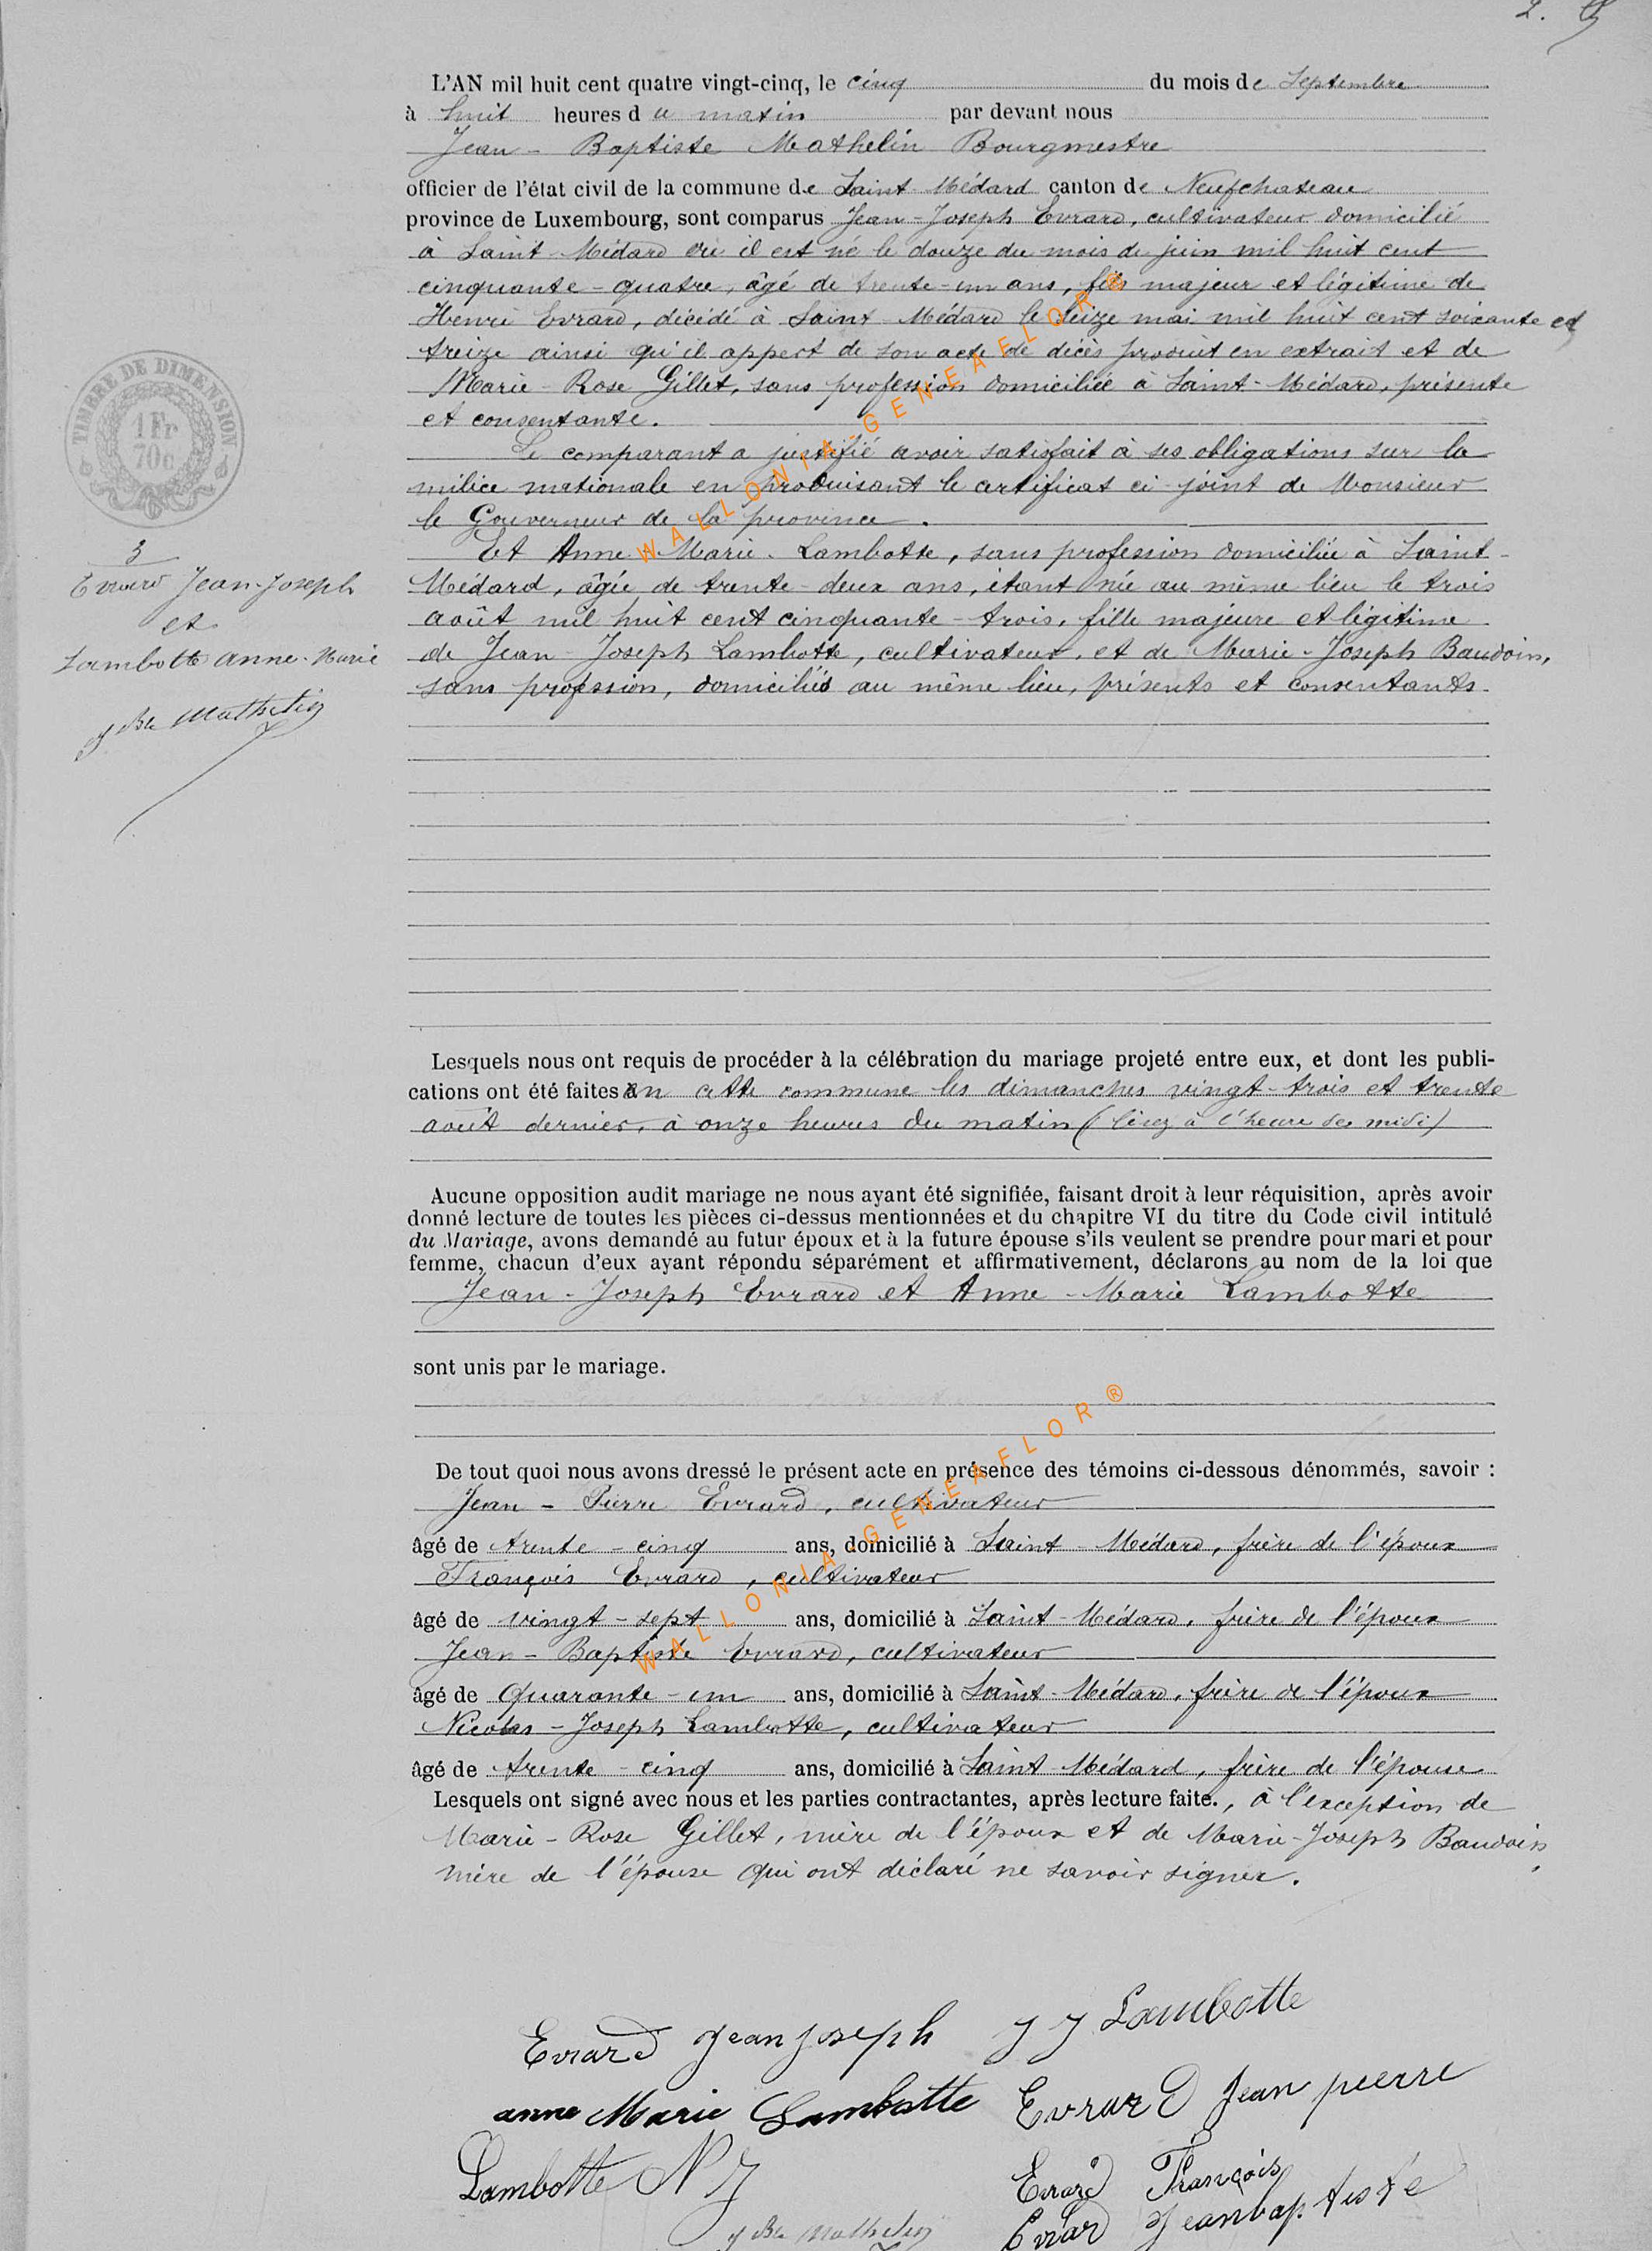 2.
L'AN mil huit cent quatre vingt-cinq, le cinq du mois de Septembre
à huit heures du matin par devant nous
Jean - Baptiste Mathelin Bourgmestre
officier de l'état civil de la commune de Saint-Médard canton de Neufchateau
province de Luxembourg, sont comparus Jean-Joseph Evrard, cultivateur domicilié
à Saint-Médard où il est né le douze du mois de juin mil huit cent
cinquante-quatre, âgé de trente-un ans, fils majeur et légitime de
Henri Evrard, décédé à Saint-Médard le seize mai mil huit cent soixante et
treize ainsi qu'il appert de son acte de décès produit en extrait et de
Marie-Rose Gillet, sans profession domiciliée à Saint-Médard, présente
et consentante.
Le comparant a justifié avoir satisfait à ses obligations sur la
milice nationale en produisant le certificat ci-joint de Monsieur
le Gouverneur de la province.
Et Anne-Marie Lambotte, sans profession domiciliée à Saint-
Médard, âgée de trente-deux ans, étant née au même lieu le trois
août mil huit cent cinquante-trois, fille majeure et légitime
de Jean-Joseph Lambotte, cultivateur, et de Marie-Joseph Baudoin,
sans profession, domiciliés au même lieu, présents et consentants.
TIMBRE DE DIMENSION
1 Fr
70c
3
Evrard Jean-Joseph
et
Lambotte Anne-Marie
J Bte Mathelin
WALLONIA-GENEAFLOR®
Lesquels nous ont requis de procéder à la célébration du mariage projeté entre eux, et dont les publi-
cations ont été faites en cette commune les dimanches vingt-trois et trente
août dernier, à onze heures du matin (lisez à l'heure de midi)
Aucune opposition audit mariage ne nous ayant été signifiée, faisant droit à leur réquisition, après avoir
donné lecture de toutes les pièces ci-dessus mentionnées et du chapitre VI du titre du Code civil intitulé
du Mariage, avons demandé au futur époux et à la future épouse s'ils veulent se prendre pour mari et pour
femme, chacun d'eux ayant répondu séparément et affirmativement, déclarons au nom de la loi que
Jean-Joseph Evrard et Anne-Marie Lambotte
sont unis par le mariage.
De tout quoi nous avons dressé le présent acte en présence des témoins ci-dessous dénommés, savoir :
Jean - Pierre Evrard, cultivateur
âgé de trente-cinq ans, domicilié à Saint-Médard, frère de l'époux
François Evrard, cultivateur
âgé de vingt-sept ans, domicilié à Saint-Médard, frère de l'époux
Jean-Baptiste Evrard, cultivateur
âgé de quarante-un ans, domicilié à Saint-Médard, frère de l'époux
Nicolas-Joseph Lambotte, cultivateur
âgé de trente-cinq ans, domicilié à Saint-Médard, frère de l'épouse
Lesquels ont signé avec nous et les parties contractantes, après lecture faite., à l'exception de
Marie-Rose Gillet, mère de l'époux et de Marie-Joseph Baudoin
mère de l'épouse qui ont déclaré ne savoir signer.
WALLONIA-GENEAFLOR®
Evrard jean joseph J J Lambotte
anne Marie Lambotte Evrard Jean pierre
Lambotte N J Evrard François
J Bte Mathelin Evrard Jeanbaptiste